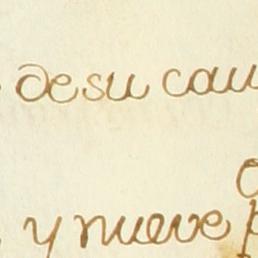 de su cau
y nueve